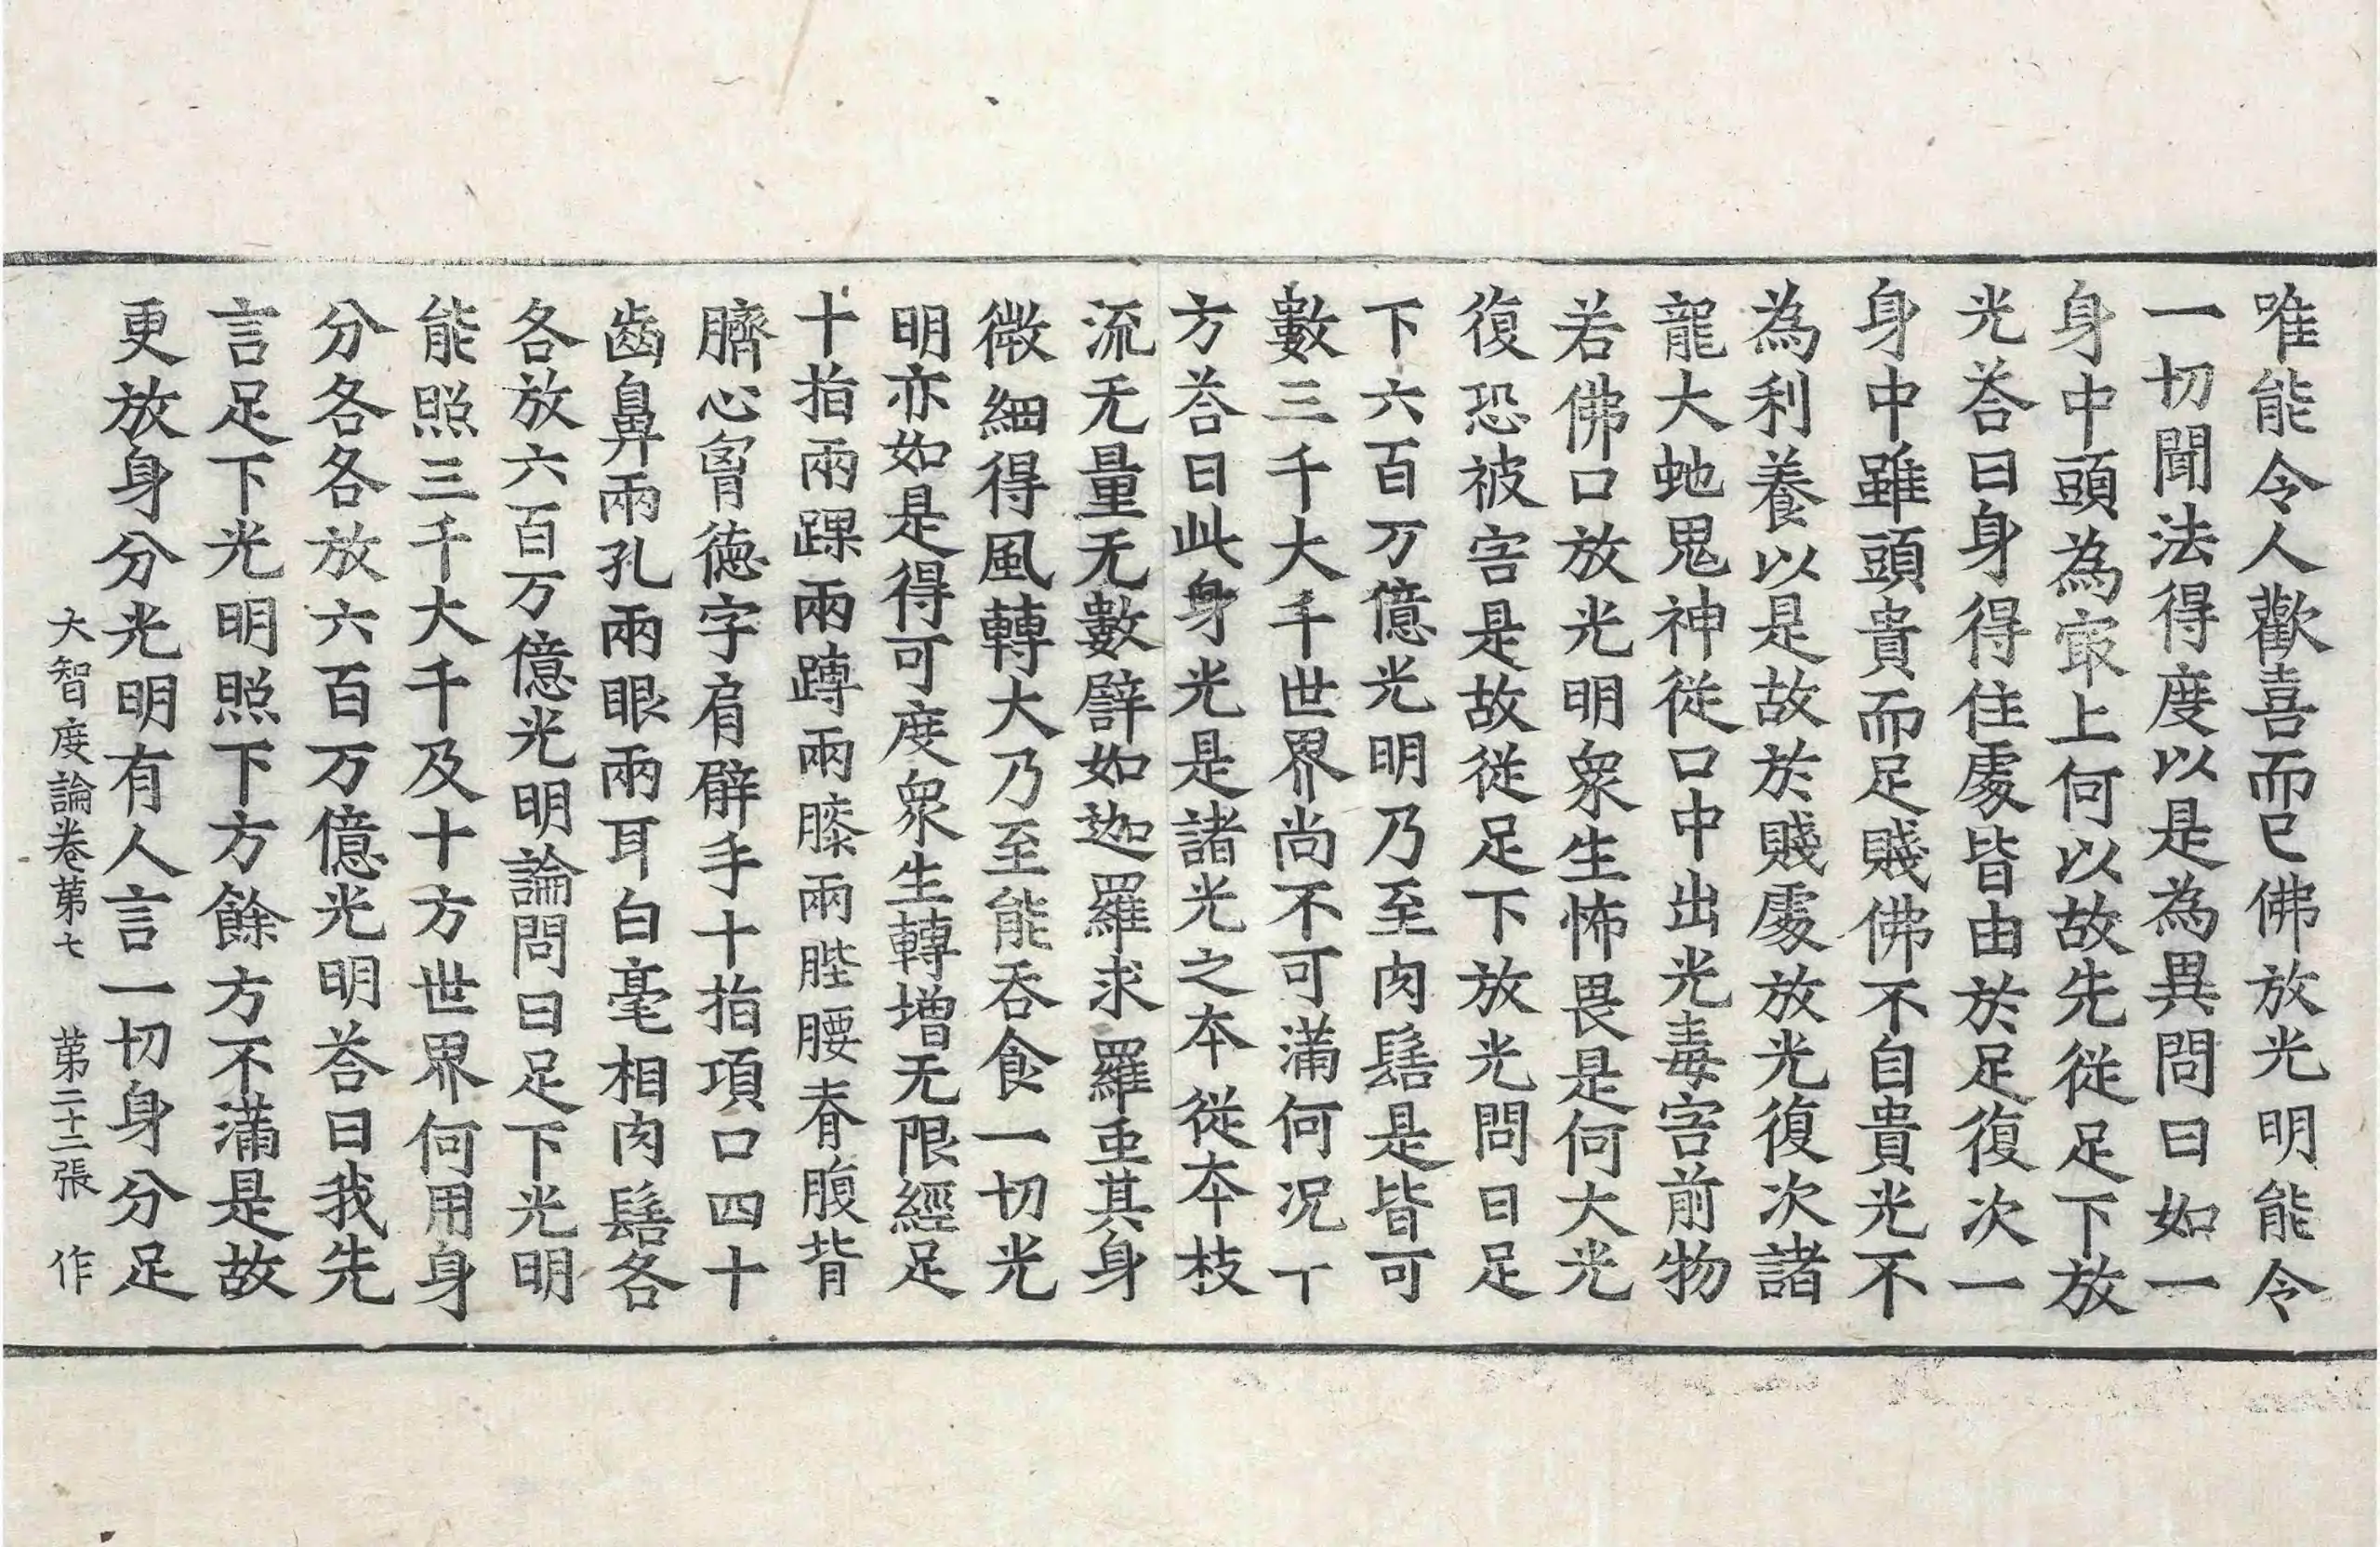 唯能令人歡喜而已佛放光明能令
一切聞法得度以是為異問曰如一
身中頭為冣上何以故先從足下放
光荅曰身得住處皆由於足復次一
身中雖頭貴而足賤佛不自貴光不
為利養以是故於賤處放光復次諸
龍大虵鬼神從口中出光毒害前物
若佛口放光明衆生怖畏是何大光
復恐被害是故從足下放光問曰足
下六百万億光明乃至肉髻是皆可
數三千大千世界尚不可滿何况十
方荅曰此身光是諸光之本從本枝
流无量无數譬如迦羅求羅䖝其身
微細得風轉大乃至能吞食一切光
明亦如是得可度衆生轉增无限經足
十指兩踝兩蹲兩膝兩䏶腰脊腹背
臍心胷德字肩臂手十指項口四十
齒鼻兩孔兩眼兩耳白毫相肉髻各
各放六百万億光明論問曰足下光明
能照三千大千及十方世界何用身
分各各放六百万億光明荅曰我先
言足下光明照下方餘方不滿是故
更放身分光明有人言一切身分足
大智度論卷苐七 苐二十二張 作